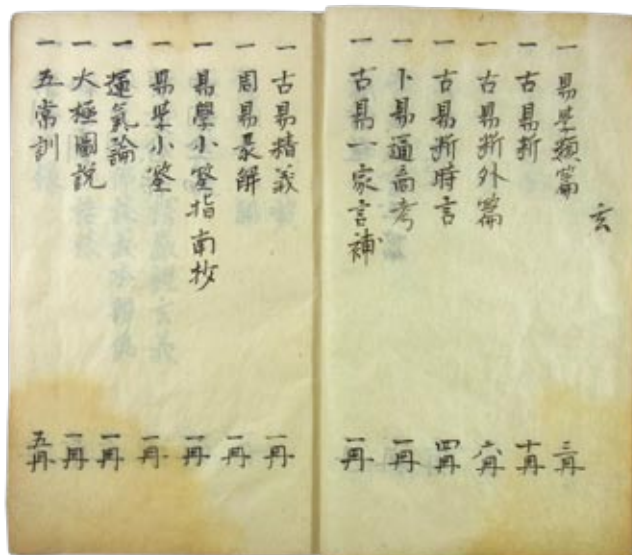 玄
一 易学類篇 三冊
一 古易断 十冊
一 古易断外篇 六冊
一 古易断時言 四冊
一 卜易通商考 一冊
一 古易一家言補 一冊
一 古易精義 一冊
一 周易解 一冊
一 易學小筌指南抄 一冊
一 易学小筌 一冊
一 運氣論 一冊
一 大極圖説 一冊
一 五常訓 五冊